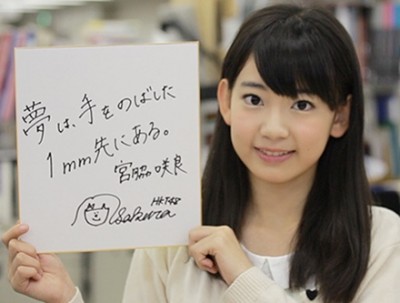 夢は、手をのばした
1mm先にある。
宮脇咲良
HKT48
sakura